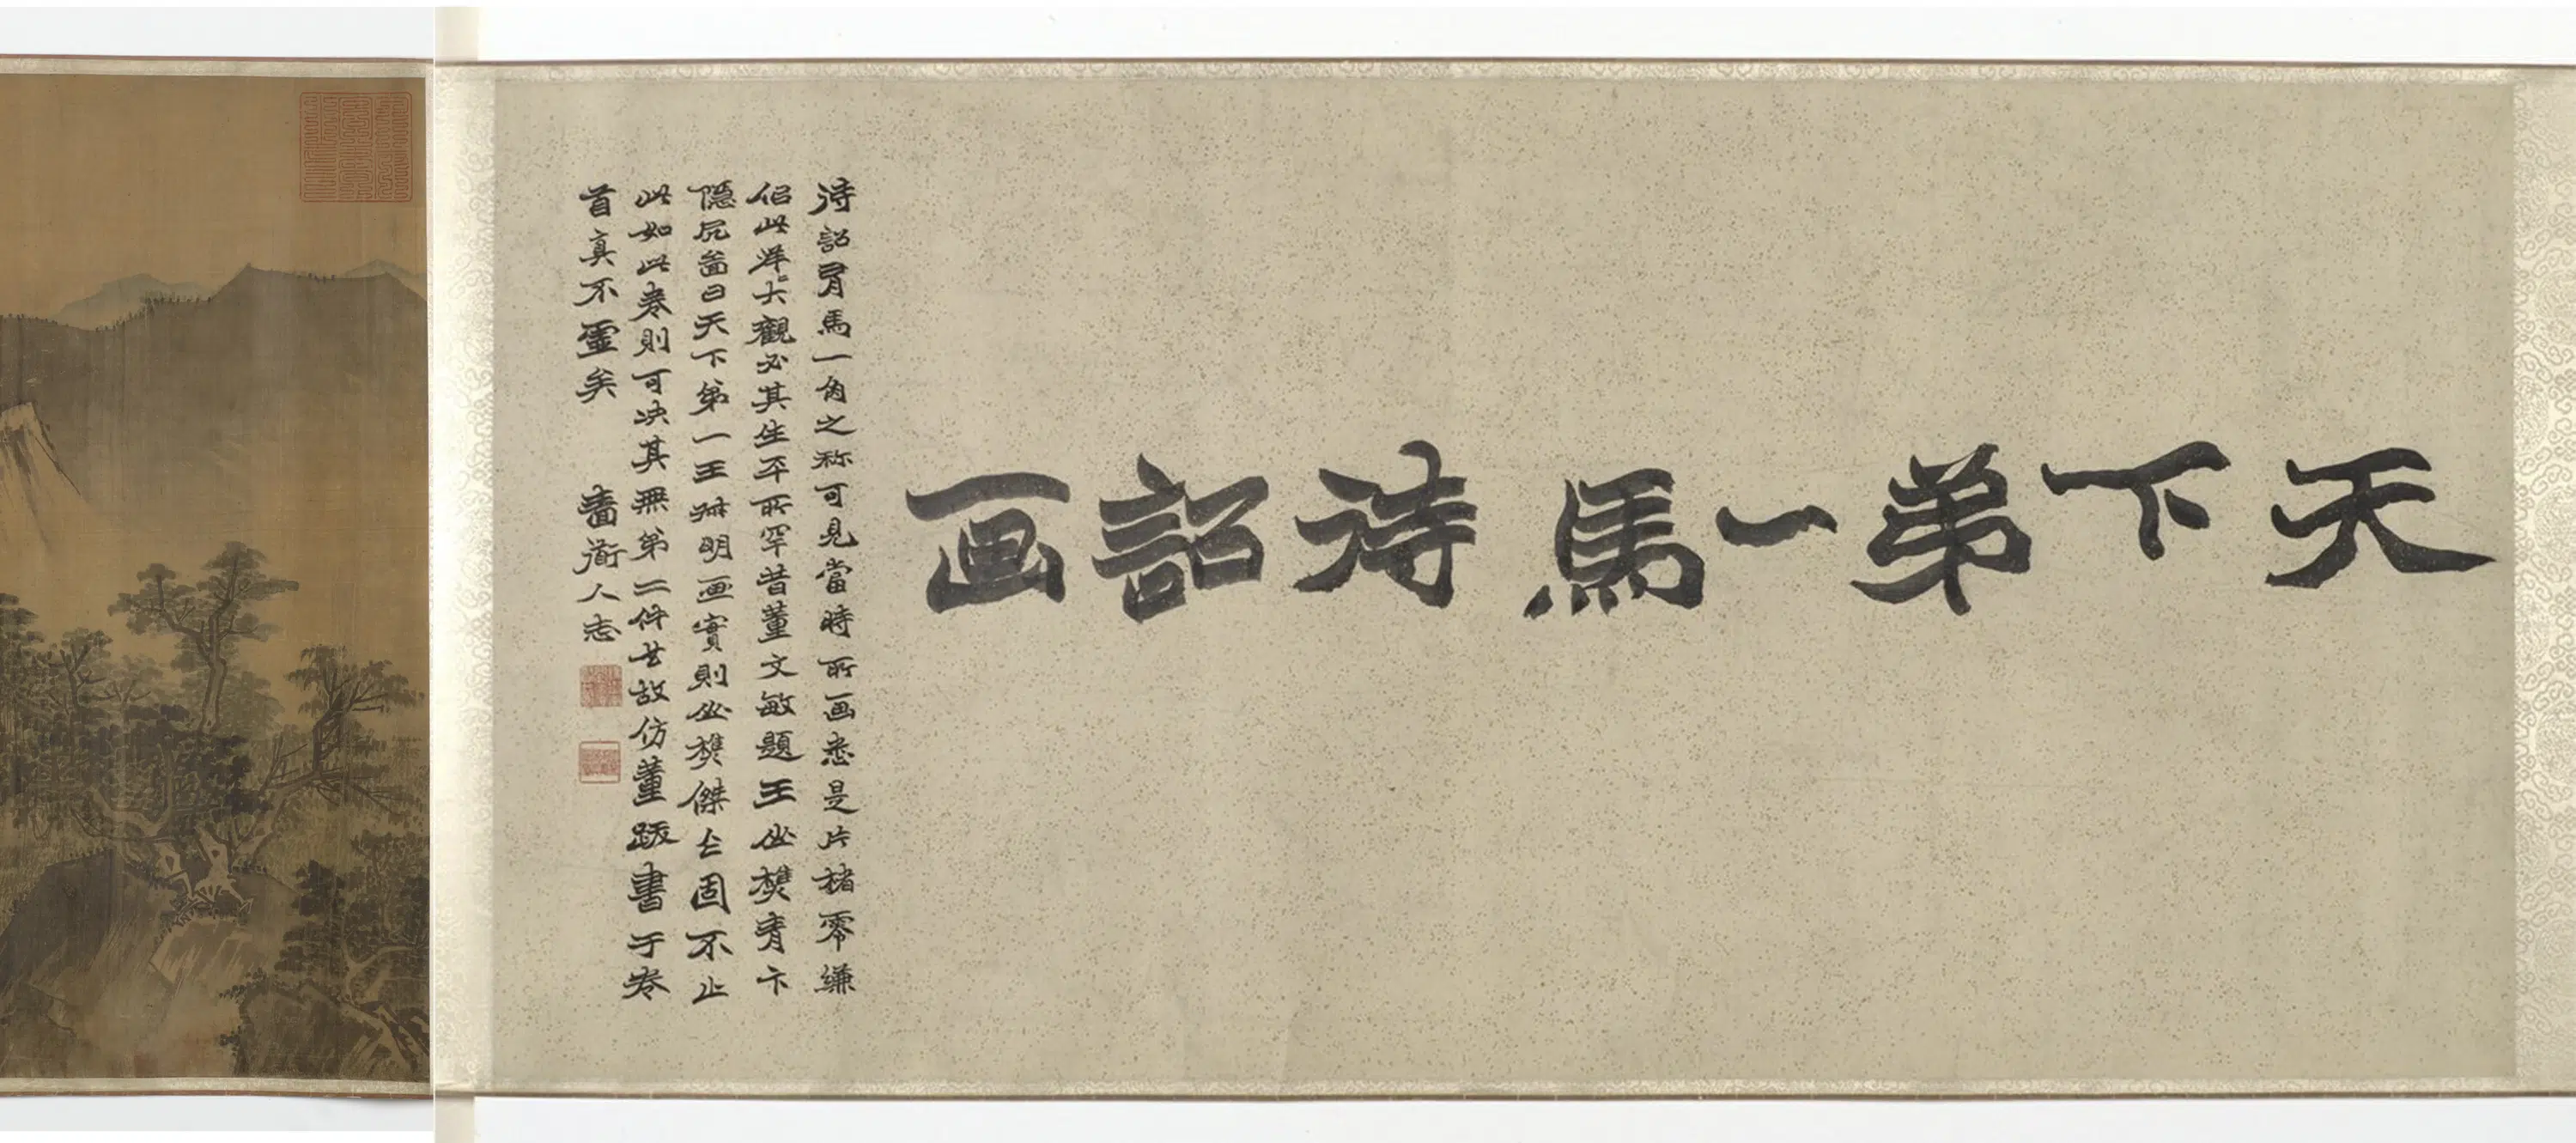 天下弟一馬待詔画
待詔有馬一角之称可見當時所画悉是片楮零縑
侣此洋〻大觀必其生平所罕昔董文敏題王山樵青卞
隱居啚曰天下第一王叔明画實則山樵傑仧固不止
此如此卷則可决其無第二件廿故仿董跋書于卷
首真不靈矣 書衖人志